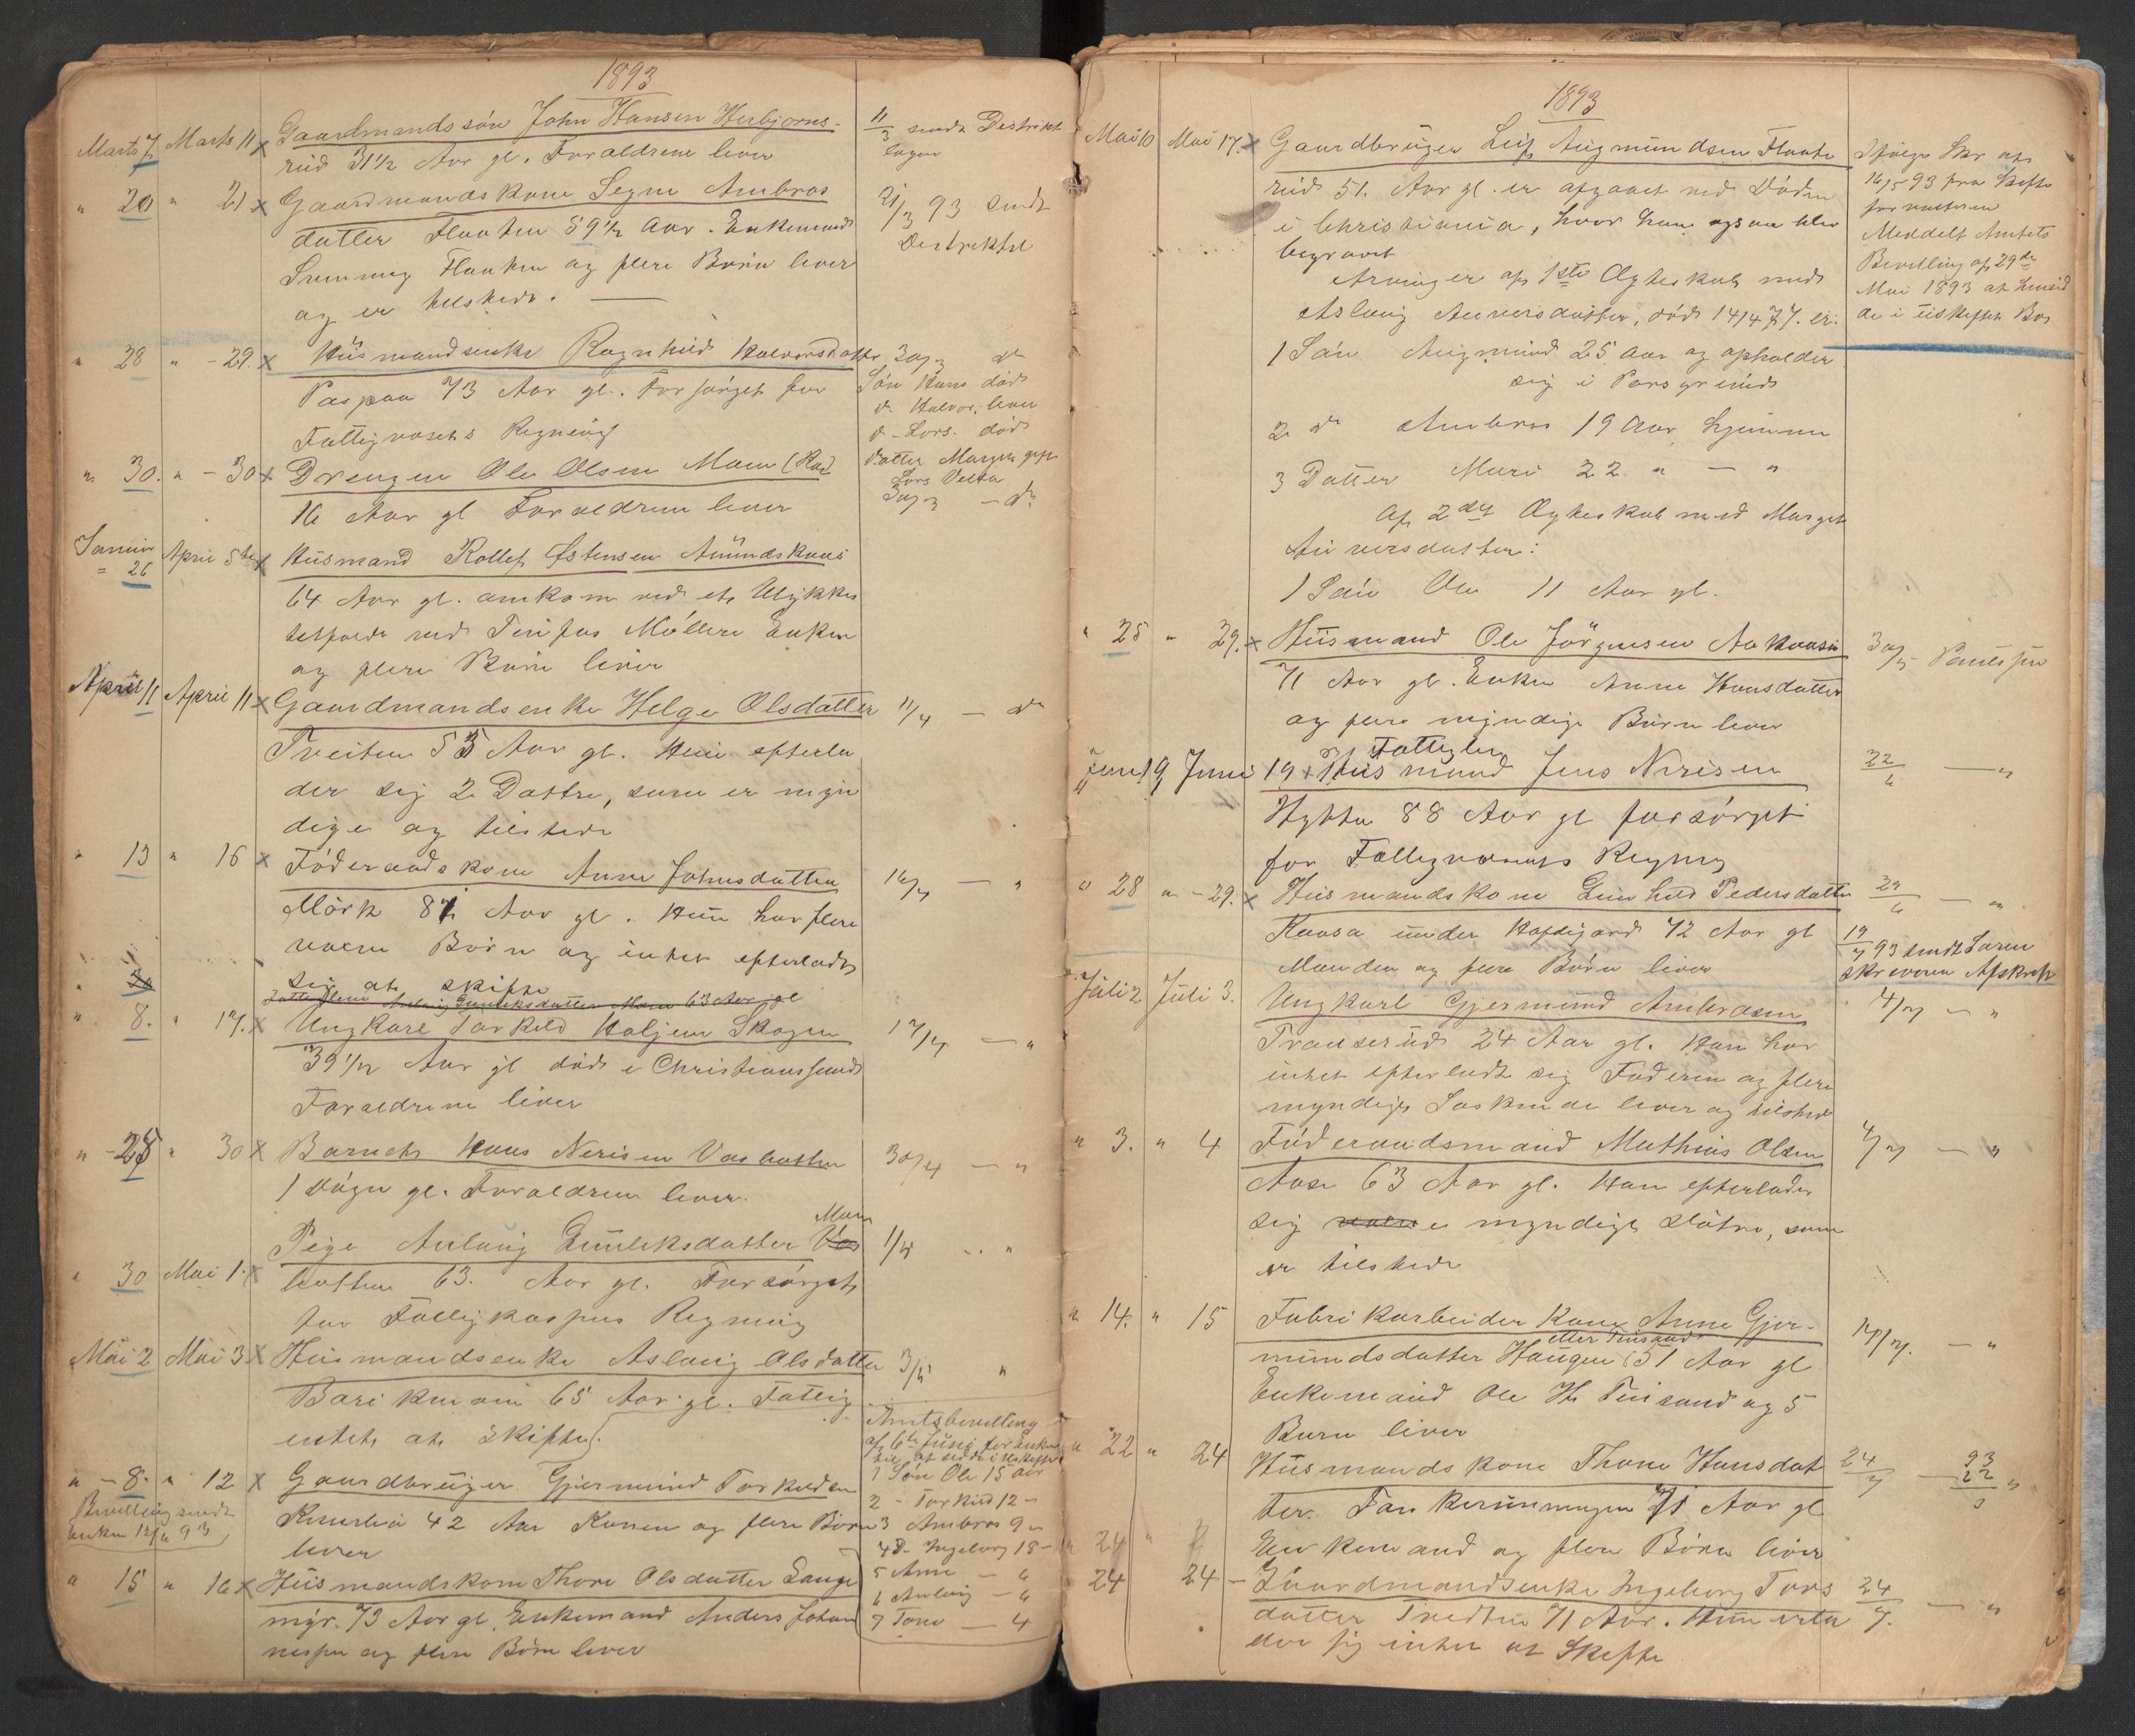 1893
Marts 7 Marts 11 x Gaardmandssön John Hansen Herbjorns-
rud 31 1/2 Aar gl. Foraldrene lever
11/3 sendt Distrikt
" 20 " 21 x Gaardmandskone Segne Ambros
datter Flaaten 59 1/2 Aar. Enkemand
Flaaten og flere Börn lever
og er tilstede. —
21/3 93 sendt
Distriktet
" 28 " - 29. x Husmandsenke Ragnhild Halvorsdatter
Paspaa 73 Aar gl. Forsörget for
Fattigvæsets Regning
30/3 do
Sön Hans död
do Halvor, lever
do - Lars. död
datter Margit gift
Lars Veita
" 30. " - 30 x Drengen Ole Olsen Moen
16 Aar gl Foraldrene lever
30/3 — do
Januar
= 26 April 5te x Husmand Rollef Østensen Amundskaas
64 Aar gl. omkom ved et Ulykkes
tilfælde ved Tinfos Möllere Enken
og flere Börn lever
April 11 April 11 x Gaardmandsenke Helge Olsdatter
Tveiten 55 Aar gl. Hun efterla
der sig 2 Dattre, som er myn
dige og tilstede
11/4 — do
" 13 " 16 x Föderaadskone Anne Johnsdatter
Mörk 87 Aar gl. Hun har flere
voxne Börn og intet efterladt
sig at skifte
16/4 — "
Aslaug Gunleksdatter Moen 63 Aar gl
" 8. " 17. x Ungkarl Torkild Haljem Skogen
39 1/2 Aar gl död i Christianssund
Foraldrene lever
17/4 — "
" - 25 " 30 x Barnet Hans Nerisen Vasbotten
1 Dögn gl. Foraldrene lever.
30/4 — "
Moen
Pige Aslaug Gunleksdatter Vas
" 30 Mai 1. x botten 63. Aar gl. Forsörget
for Fattigkassens Regning
Mai 2 Mai 3 x Husmandsenke Aslaug Olsdatter
65 Aar gl. Fattig
intet at Skifte.
3/5 "
" - 8. " 12 x Gaardbruger Gjermund Torkildsen
42 Aar Konen og flere Börn
lever
Bevilling sendt
enken 12/6 93
Amtsbevilling
af 6te Juni for enken
til at sidde i Uskiftet
1 Sön Ole 15 Aar
2 - Torkild 12 -
3 Ambros 9 -
4 D - Ingeborg 18 -
5 Anne — "
6 Aslaug — "
7 Tone — 4
" 15 " 16 x Husmandskone Thore Olsdatter Lange
myr. 73 Aar gl. Enkemand Anders Johan
nessen og flere Börn lever
1893
Mai 10 Mai 17. x Gaardbruger Leif Augmundsen Flaate
rud 51. Aar gl. er afgaaet ved Döden
i Christiania, hvor han ogsaa blev
begravet
Arvinger af 1ste Ægteskab med
Aslaug Auversdatter, död 14/4 77. er:
1 Sön Augmund 25 Aar og opholder
sig i Porsgrund
2 do Ambros 19 Aar hjemme
3 Datter Mari 22 " — "
af 2det Ægteskab med Marget
Auversdatter:
1 Sön Ole 11 Aar gl.
Ifölge Skr af
16/5 93 fra Skifte
forvalteren
Meddelt Amtets
Bevilling af 29de
Mai 1893 at hensid
de i uskiftet Bo
" 25 " 29. x Husmand Ole Jörgensen Aakaasa
71 Aar gl. Enken Anne Hansdatter
og flere myndige Börn lever
30/5
Fattiglem
Juni 19 Juni 19 x Husmand Jens Nirisen
Hytta 88 Aar gl forsörget
for Fattigvæsenets Regning
22/6 — "
" 28 " - 29. x Husmandskone Gunhild Pedersdatter
Kaasa under Haftigard 72 Aar gl
Manden og flere Börn lever
29/6 — "
19/7 93 sendt Soren
skriveren Afskrift
Juli 2 Juli 3. Ungkarl Gjermund Ambrosen
24 Aar gl. Han har
intet efterladt sig Faderen og flere
myndige Söskende lever og tilstede
4/7 — "
" 3. " 4 Föderaadsmand Mathias Olsen
Aase 63 Aar gl. Han efterlader
sig myndige Dötre, som
er tilstede
4/7 — "
" 14. " 15 Fabrikarbeider Kone Anne Gjer-
eller Tinsand
mundsdatter Haugen (51 Aar gl
Enkemand Ole H. Tinsand og 5
Börn lever
17/7. — "
" 22 " 24 Husmandskone Thone Hansdat
ter. 71 Aar gl
Enkemand og flere Börn lever
24/7
24 24 - Gaardmandsenke Ingeborg Tors
datter Tveiten 71 Aar. Hun efterla
der sig intet at Skifte
24/7. — "